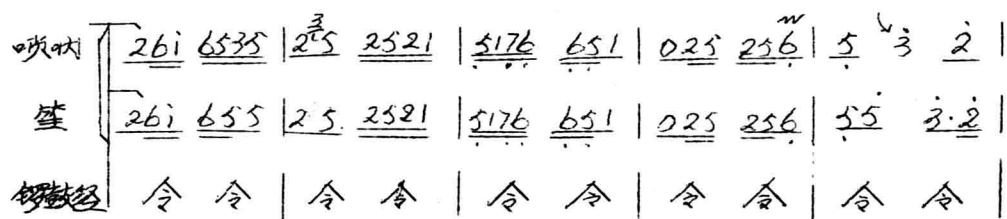 唢呐 2 6 i̇ 6 5 3 5 | 2 5 2 5 2 1 | 5 1 7 6 6 5 1 | 0 2 5 2 5 6 | 5 3̇ 2̇
笙 2 6 i̇ 6 5 5 | 2 5. 2 5 2 1 | 5 1 7 6 6 5 1 | 0 2 5 2 5 6 | 5 5 3̇ · 2̇
锣鼓经 令 令 | 令 令 | 令 令 | 令 令 | 令 令